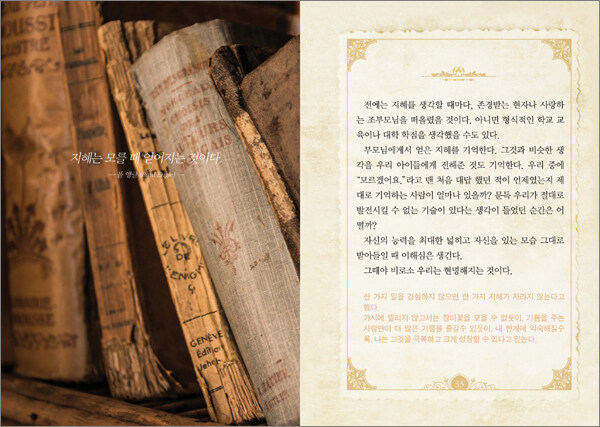 OUSSI
LUSTRÉ
지혜는 모를 때 얻어지는 것이다
L'ŒUVRE
DE
L'ÉNIGME
GENÈVE
Édition
전에는 지혜를 생각할 때마다, 존경받는 현자나 사랑하
는 조부모님을 떠올렸을 것이다. 아니면 형식적인 학교 교
육이나 대학 학점을 생각했을 수도 있다.
부모님에게서 얻은 지혜를 기억한다. 그것과 비슷한 생
각을 우리 아이들에게 전해준 것도 기억한다. 우리 중에
“모르겠어요.”라고 맨 처음 대답 했던 적이 언제였는지 제
대로 기억하는 사람이 얼마나 있을까? 문득 우리가 절대로
발전시킬 수 없는 기술이 있다는 생각이 들었던 순간은 어
떨까?
자신의 능력을 최대한 넓히고 자신을 있는 모습 그대로
받아들일 때 이해심은 생긴다.
그때야 비로소 우리는 현명해지는 것이다.
한 가지 일을 경험하지 않으면 한 가지 지혜가 자라지 않는다고
한다.
가시에 찔리지 않고서는 장미꽃을 모을 수 없듯이, 기쁨을 주는
사람만이 더 많은 기쁨을 즐길수 있듯이, 내 한계에 익숙해질수
록, 나는 그것을 극복하고 크게 성장할 수 있다고 믿는다.
55